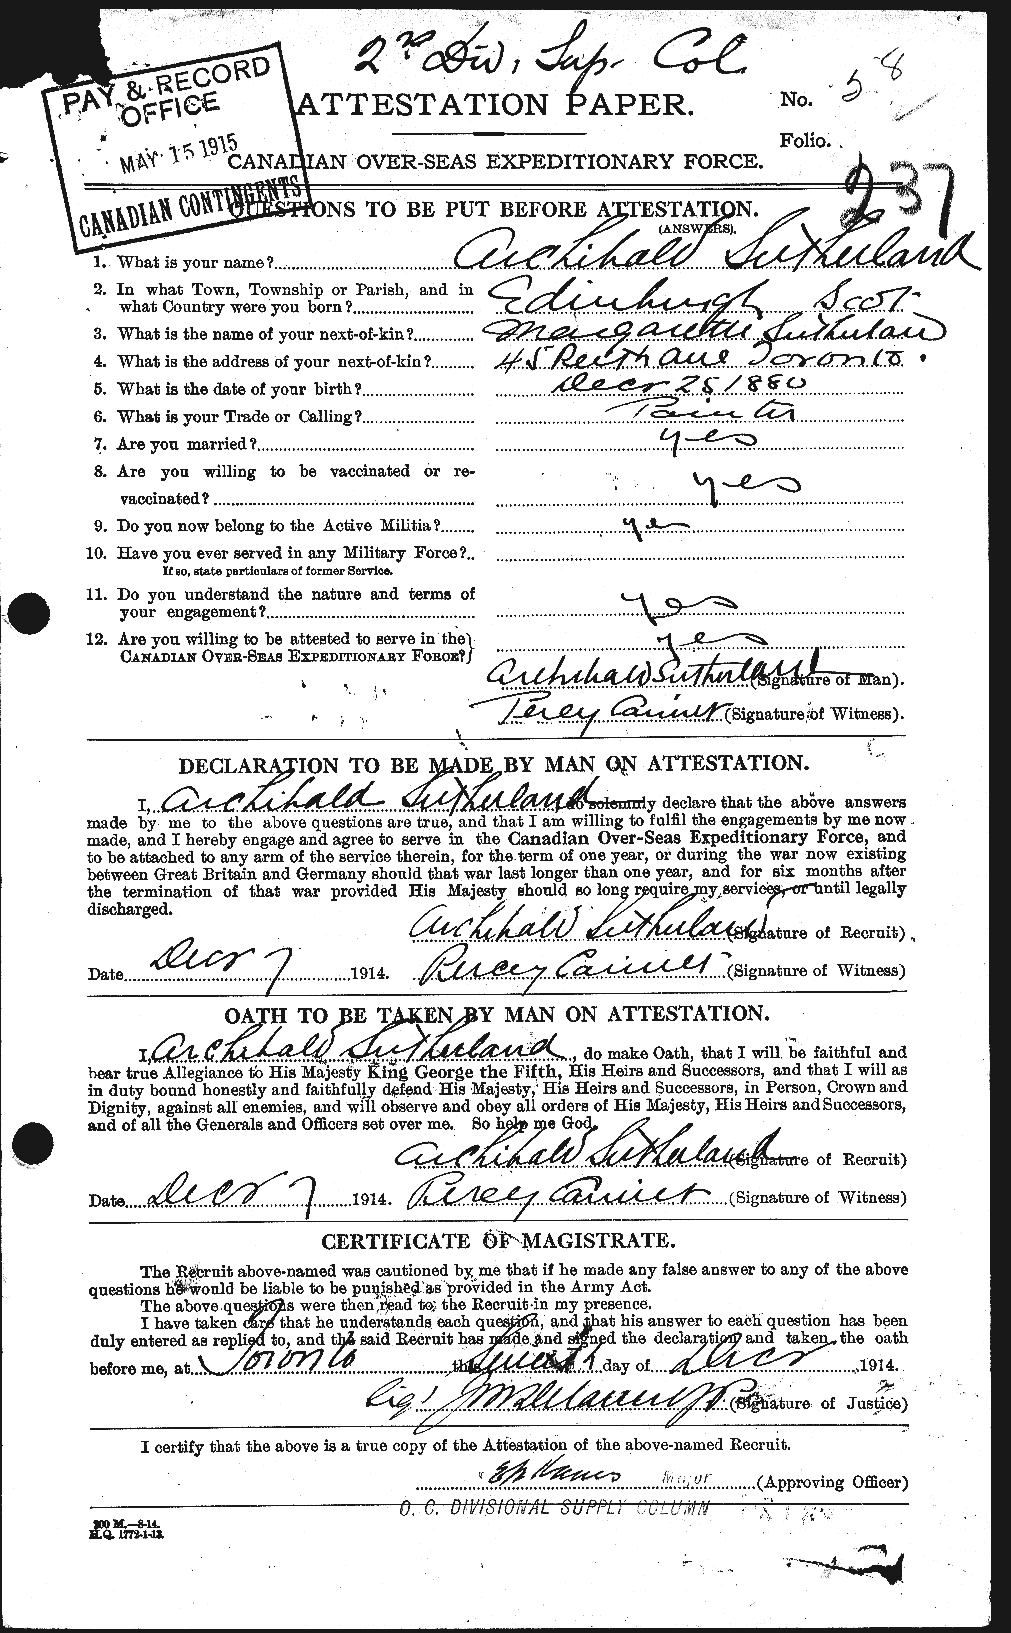 2nd Div. Sup. Col.
PAY & RECORD
OFFICE
MAY 15 1915
CANADIAN CONTINGENTS
ATTESTATION PAPER.
No. 58
Folio.
CANADIAN OVER-SEAS EXPEDITIONARY FORCE.
237
QUESTIONS TO BE PUT BEFORE ATTESTATION.
(ANSWERS).
1. What is your name? Archibald Sutherland
2. In what Town, Township or Parish, and in
what Country were you born? Edinburgh Scot
3. What is the name of your next-of-kin? Margarette Sutherland
4. What is the address of your next-of-kin? 45 Ave Toronto.
5. What is the date of your birth? Decr 25 1880
6. What is your Trade or Calling? Painter
7. Are you married? yes
8. Are you willing to be vaccinated or re-
vaccinated? yes
9. Do you now belong to the Active Militia? yes
10. Have you ever served in any Military Force?
If so, state particulars of former Service.
11. Do you understand the nature and terms of
your engagement? yes
12. Are you willing to be attested to serve in the
CANADIAN OVER-SEAS EXPEDITIONARY FORCE? yes
Archibald Sutherland (Signature of Man).
Percy (Signature of Witness).
DECLARATION TO BE MADE BY MAN ON ATTESTATION.
I, Archibald Sutherland do solemnly declare that the above answers
made by me to the above questions are true, and that I am willing to fulfil the engagements by me now
made, and I hereby engage and agree to serve in the Canadian Over-Seas Expeditionary Force, and
to be attached to any arm of the service therein, for the term of one year, or during the war now existing
between Great Britain and Germany should that war last longer than one year, and for six months after
the termination of that war provided His Majesty should so long require my services, or until legally
discharged.
Archibald Sutherland (Signature of Recruit)
Date Decr 7 1914. Percy (Signature of Witness)
OATH TO BE TAKEN BY MAN ON ATTESTATION.
I, Archibald Sutherland, do make Oath, that I will be faithful and
bear true Allegiance to His Majesty King George the Fifth, His Heirs and Successors, and that I will as
in duty bound honestly and faithfully defend His Majesty, His Heirs and Successors, in Person, Crown and
Dignity, against all enemies, and will observe and obey all orders of His Majesty, His Heirs and Successors,
and of all the Generals and Officers set over me. So help me God.
Archibald Sutherland (Signature of Recruit)
Date Decr 7 1914. Percy (Signature of Witness)
CERTIFICATE OF MAGISTRATE.
The Recruit above-named was cautioned by me that if he made any false answer to any of the above
questions he would be liable to be punished as provided in the Army Act.
The above questions were then read to the Recruit in my presence.
I have taken care that he understands each question, and that his answer to each question has been
duly entered as replied to, and the said Recruit has made and signed the declaration and taken the oath
before me, at Toronto this day of Decr 1914.
Sig! (Signature of Justice)
I certify that the above is a true copy of the Attestation of the above-named Recruit.
Major (Approving Officer)
O. C. DIVISIONAL SUPPLY COLUMN
200 M.—8-14.
H.Q. 1772-1-13.